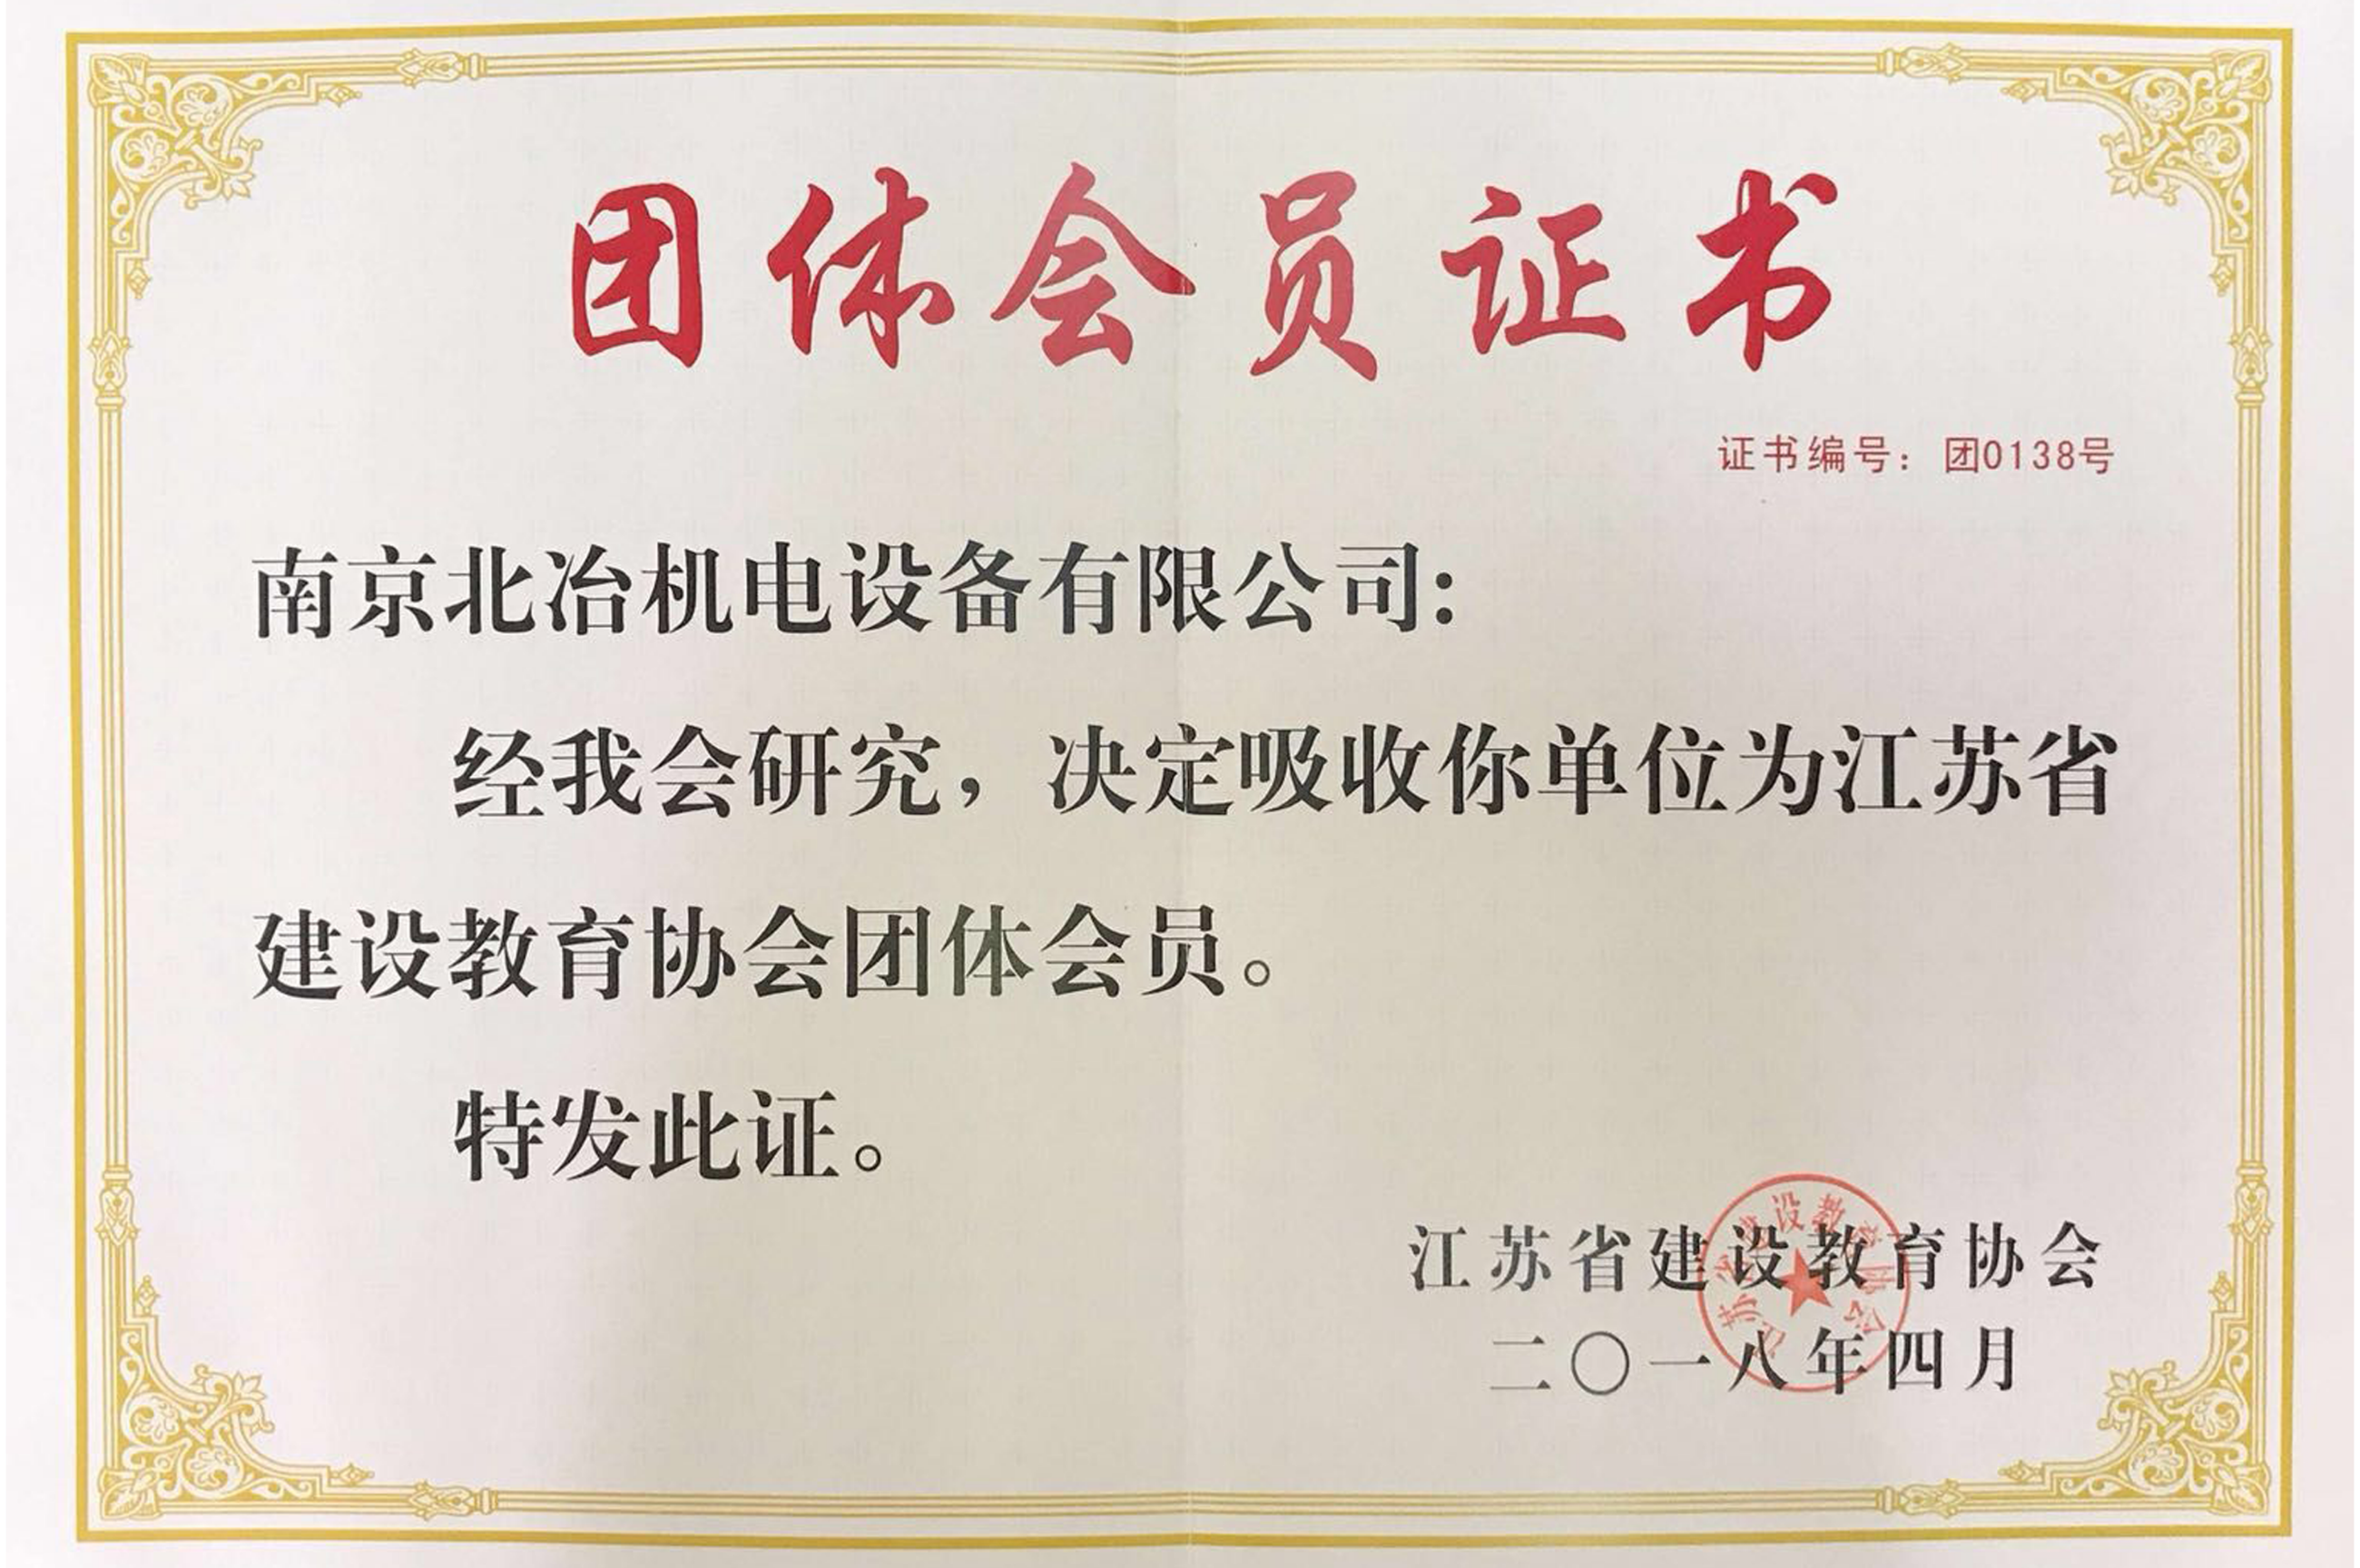 团体会员证书
证书编号：团0138号
南京北冶机电设备有限公司：
经我会研究，决定吸收你单位为江苏省
建设教育协会团体会员。
特发此证。
江苏省建设教育协会
二〇一八年四月
江苏省建设教育协会